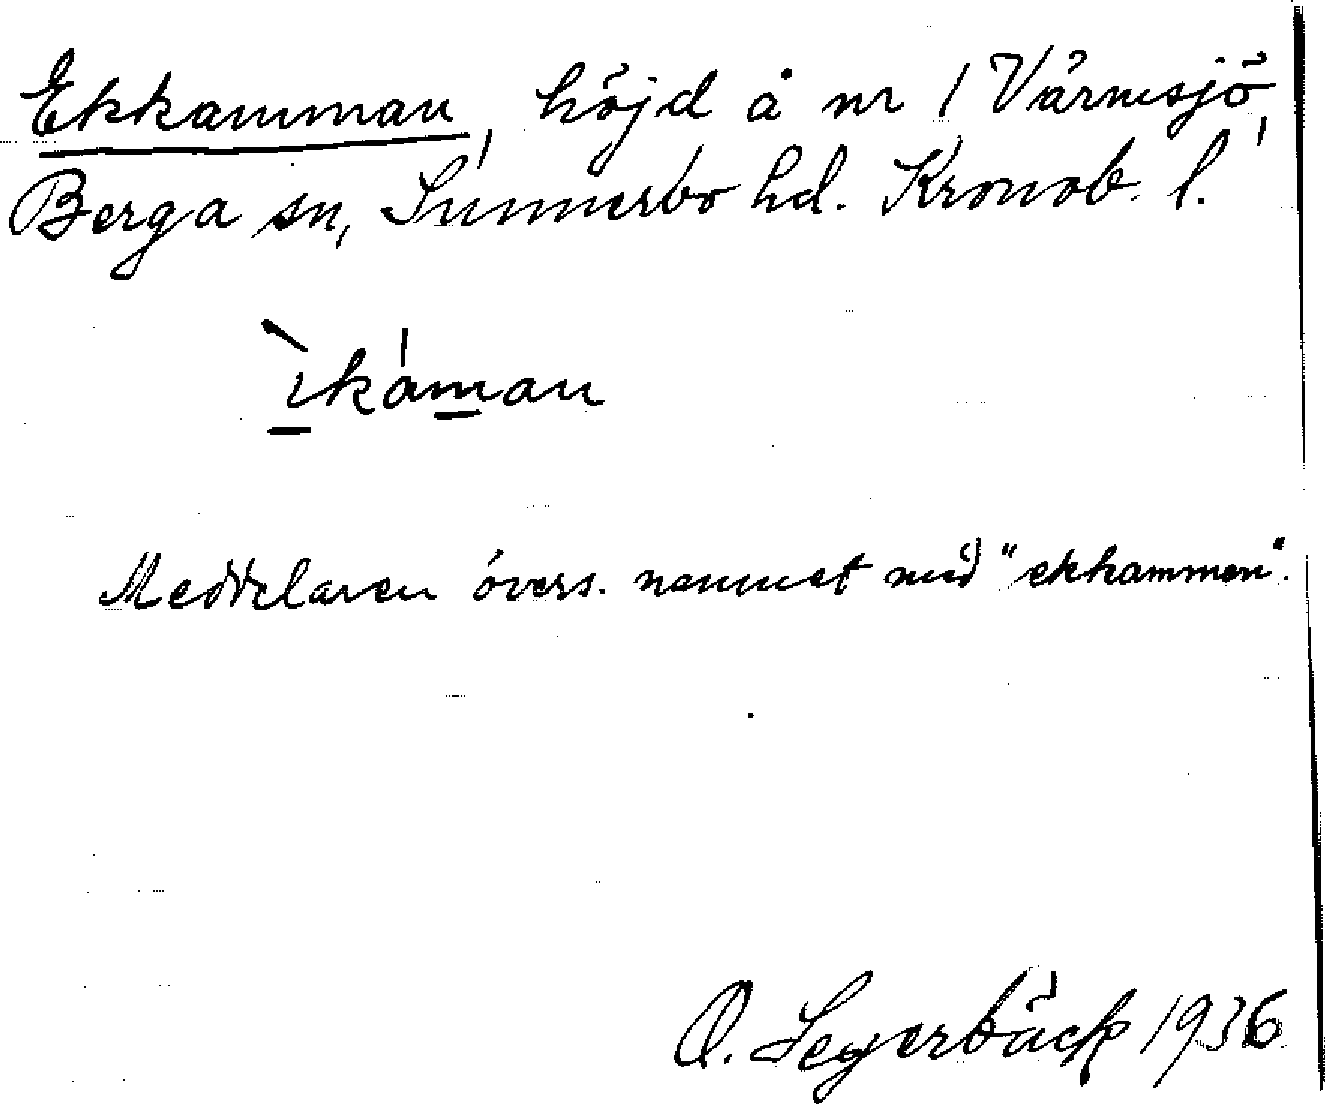 Ekkamman, höjd å nr 1 Värnsjö,
Berga sn, Sunnerbo hd. Kronob. l.
ìkáman
Meddelaren övers. namnet med "ekkammen".
O. Segerbäck 1936